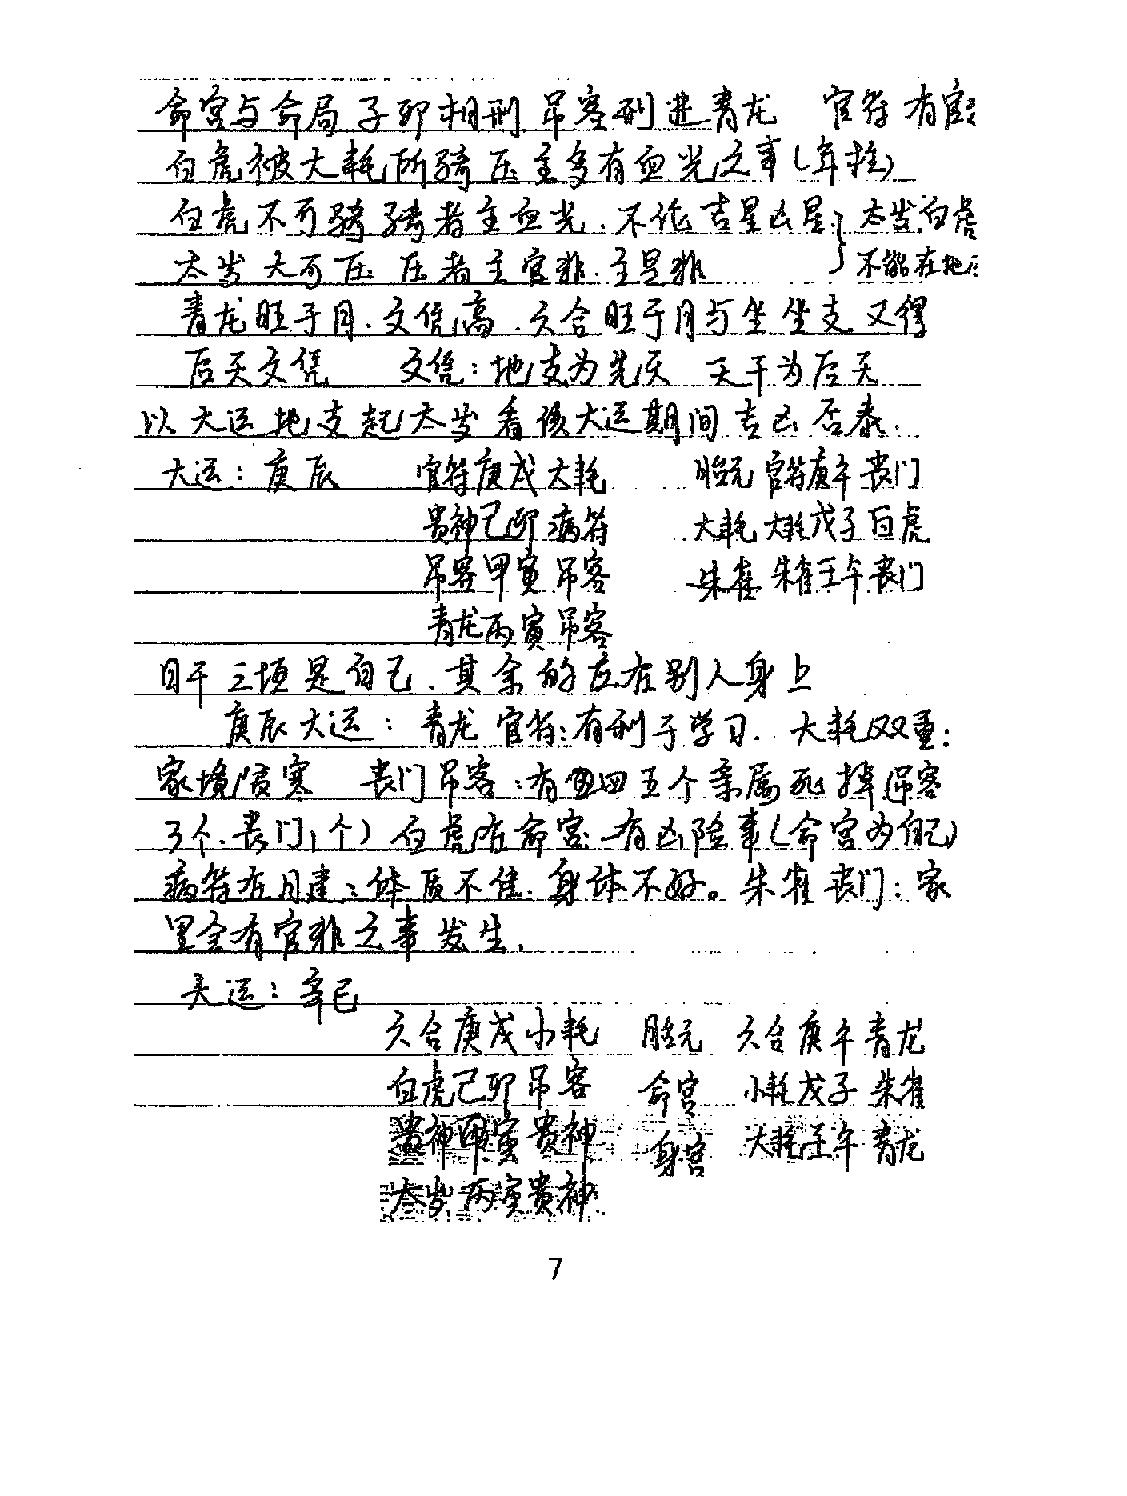 命宫与命局子卯相刑 吊客刑进青龙 官符有官
白虎被大耗所骑压主多有血光之事(年柱)
白虎不可骑骑者主血光.不论吉星凶星}太岁.白虎
太岁大可压 压者主官非.主是非 不能在地
青龙旺于月.文凭高.六合旺于月与坐坐支又得
后天文凭 文凭:地支为先天 天干为后天
以大运地支起太岁看该大运期间吉凶否泰.
大运:庚辰 官符庚戌大耗 胎元官符庚午丧门
贵神己卯病符 大耗大耗戊子白虎
吊客甲寅吊客 朱雀朱雀壬午丧门
青龙丙寅吊客
日干三项是自己.其余的应在别人身上
庚辰大运:青龙官符:有利于学习.大耗双重:
家境贫寒 丧门吊客:有四五个亲属死掉(吊客
3个.丧门1个)白虎在命宫:有凶险事(命宫为自己)
病符在月建:体质不佳.身体不好。朱雀丧门:家
里会有官非之事发生.
大运:辛巳
六合庚戌小耗 胎元 六合庚午青龙
白虎己卯吊客 命宫 小耗戊子朱雀
贵神甲寅贵神 身宫 大耗壬午青龙
太岁丙寅贵神
7